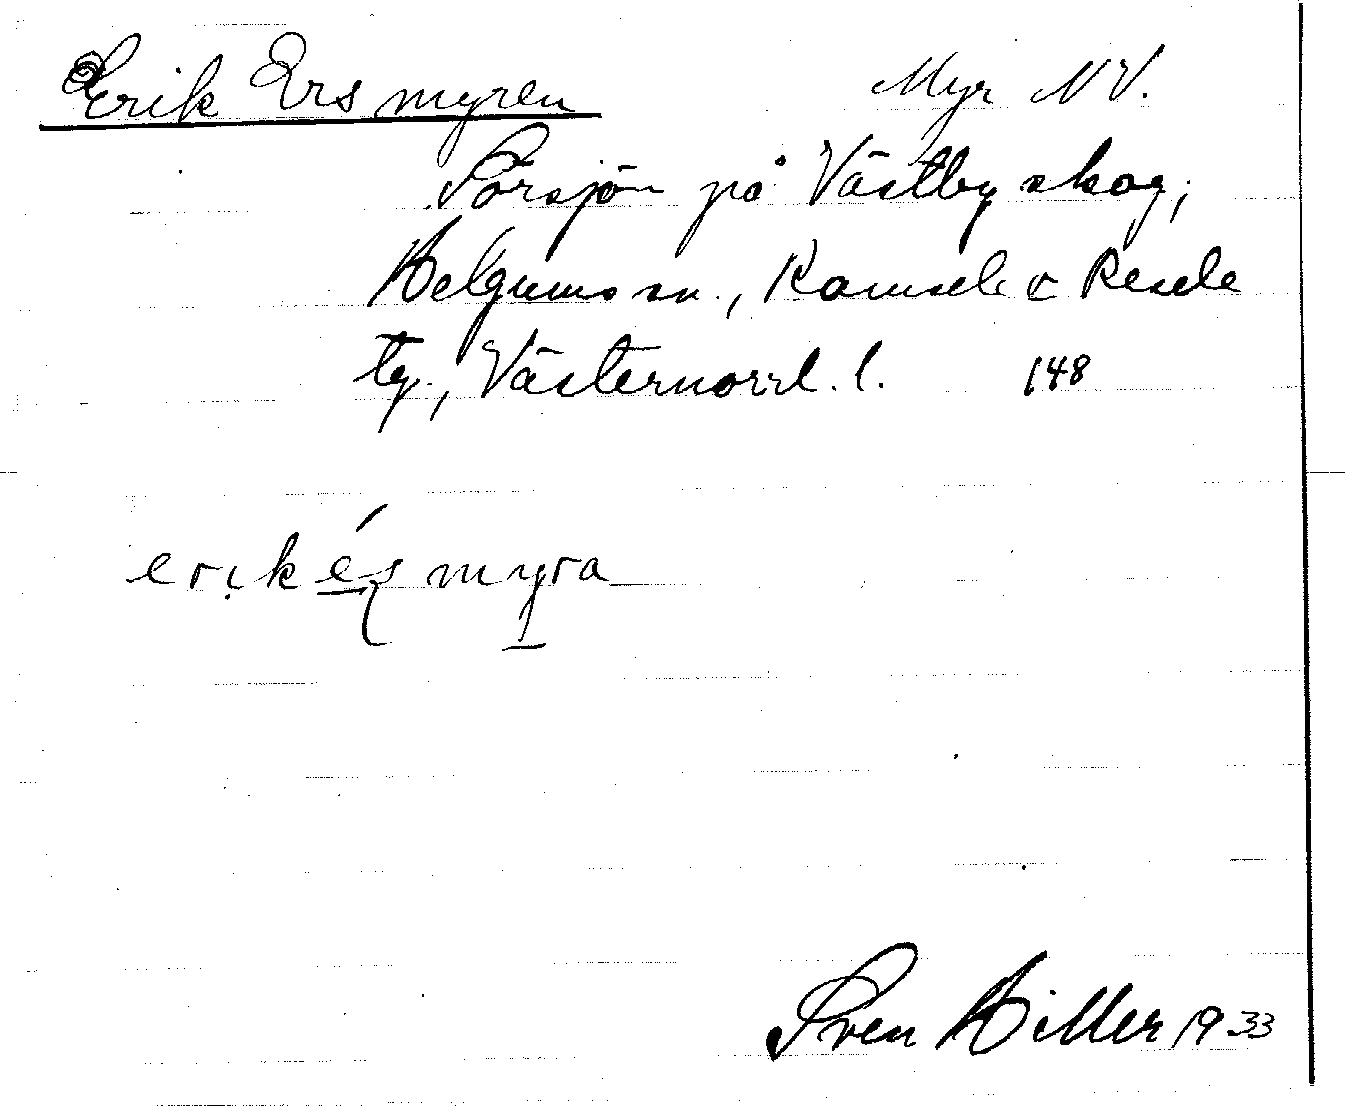 Erik Ersmyren Myr NV.
Sörsjön på Västby skog,
Helgums sn., Ramsele o Resele
tg., Västernorrl. l. 148
erikés myra
Sven Hiller 1933